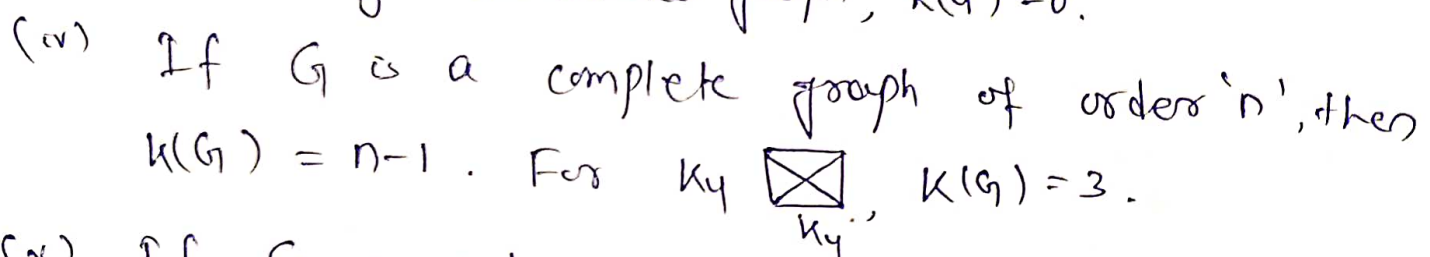 (iv) If G is a complete graph of order 'n', then
K(G) = n-1. For K4 , K(G) = 3.
K4